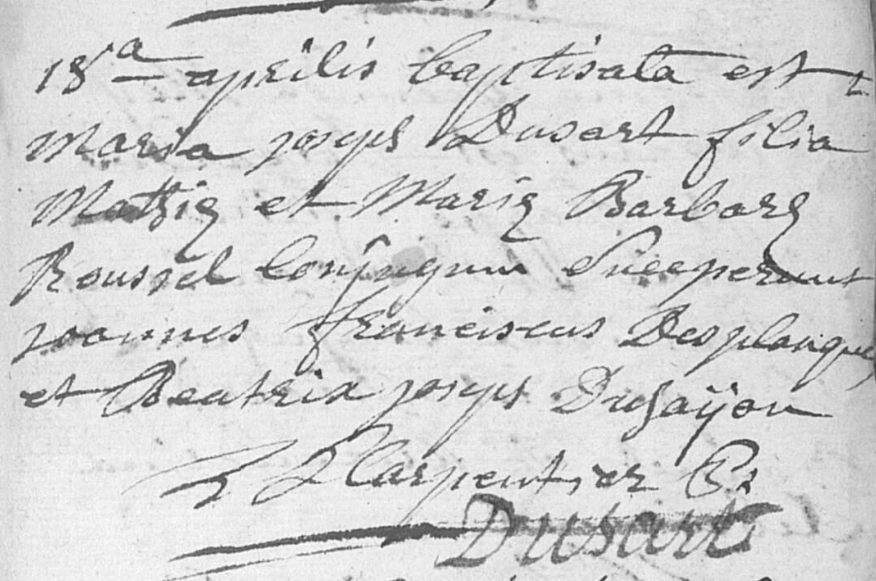 18a aprilis baptisata est
Maria joseph Dusart filia
Mathię et Marię Barbarę
Roussel Conjugum Susceperunt
joannes franciscus Desplanques
et Beatrix joseph
Carpentier
Dusart